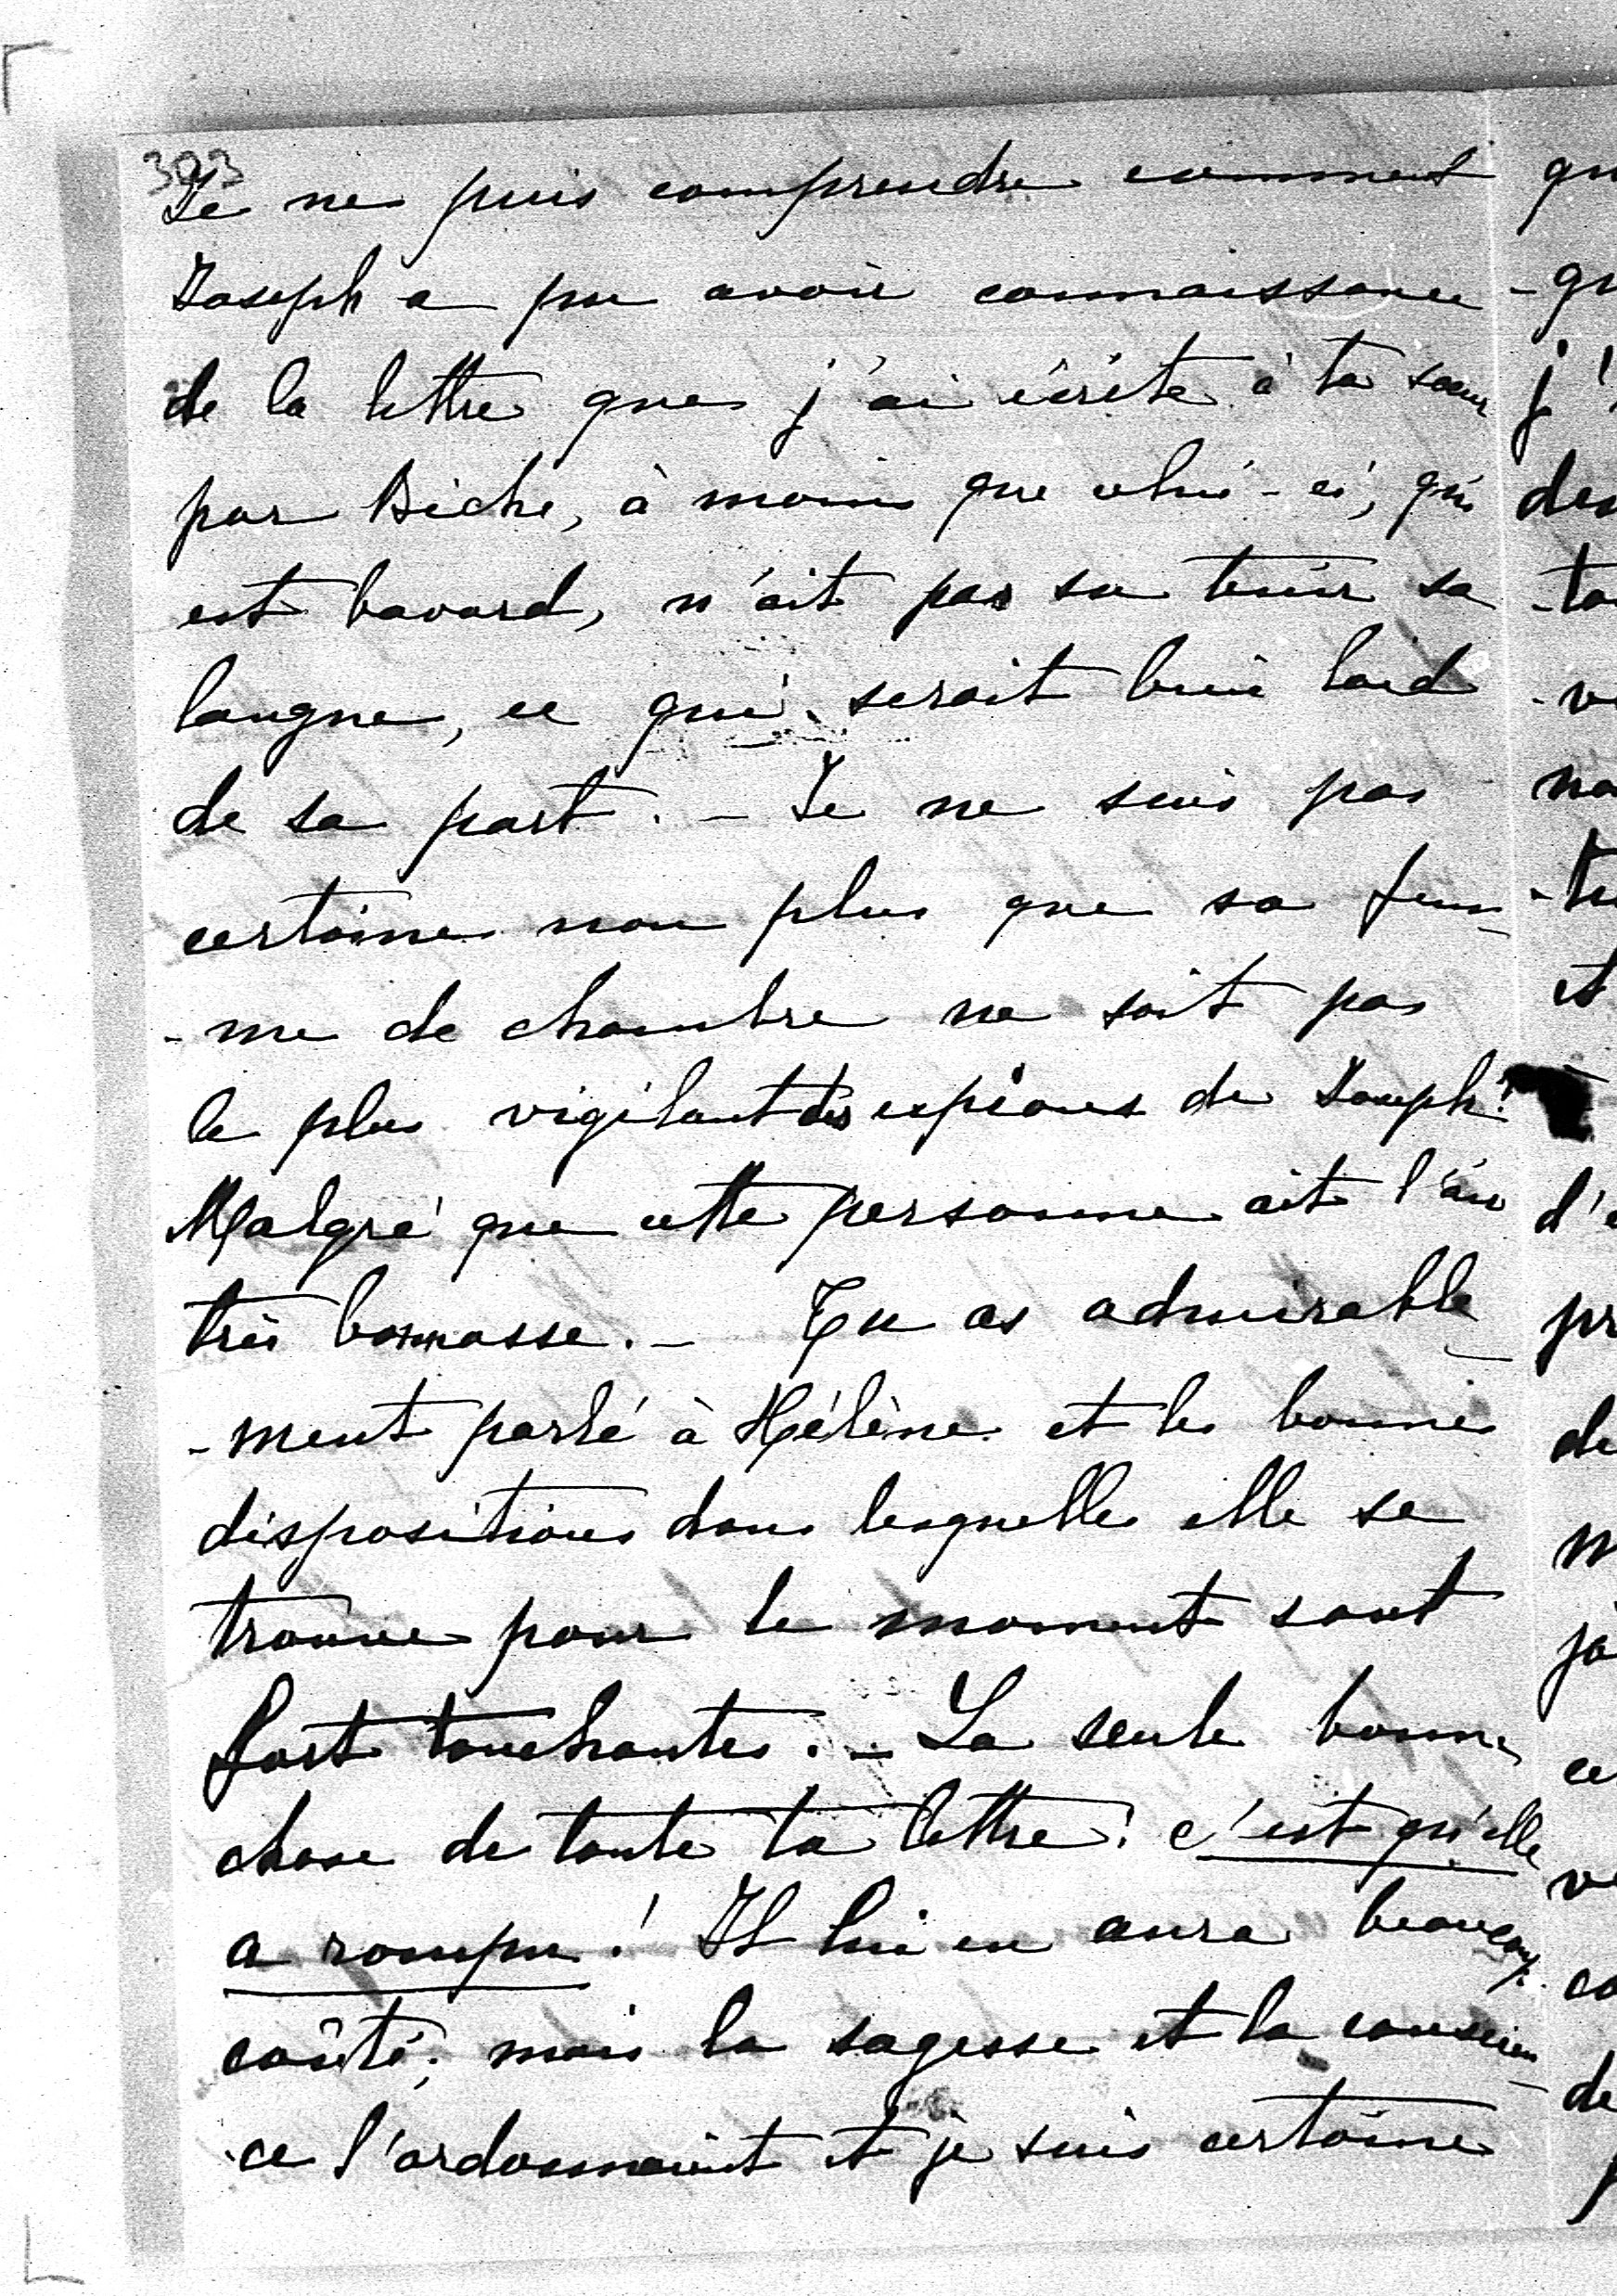 393
Je ne puis comprendre comment
Joseph a pu avoir connaissance
de la lettre que j'ai écrite à ta sœur
par Biche, à moins que celui-ci, qui
est bavard, n'ait pas su tenir sa
langue, ce qui serait bien laid
de sa part. - Je ne suis pas
certaine non plus que sa fem-
-me de chambre ne soit pas
le plus vigilant des espions de Joseph!
Malgré que cette personne ait l'air
très bonnasse. - Tu as admirable-
-ment parlé à Hélène et les bonnes
dispositions dans lesquelles elle se
trouve pour le moment sont
fort touchantes. - La seule bonne
chose de toute ta lettre: c'est qu'elle
a rompu! Il lui en aura beaucoup
coûté; mais la sagesse et la conscien-
ce l'ordonnaient et je suis certaine